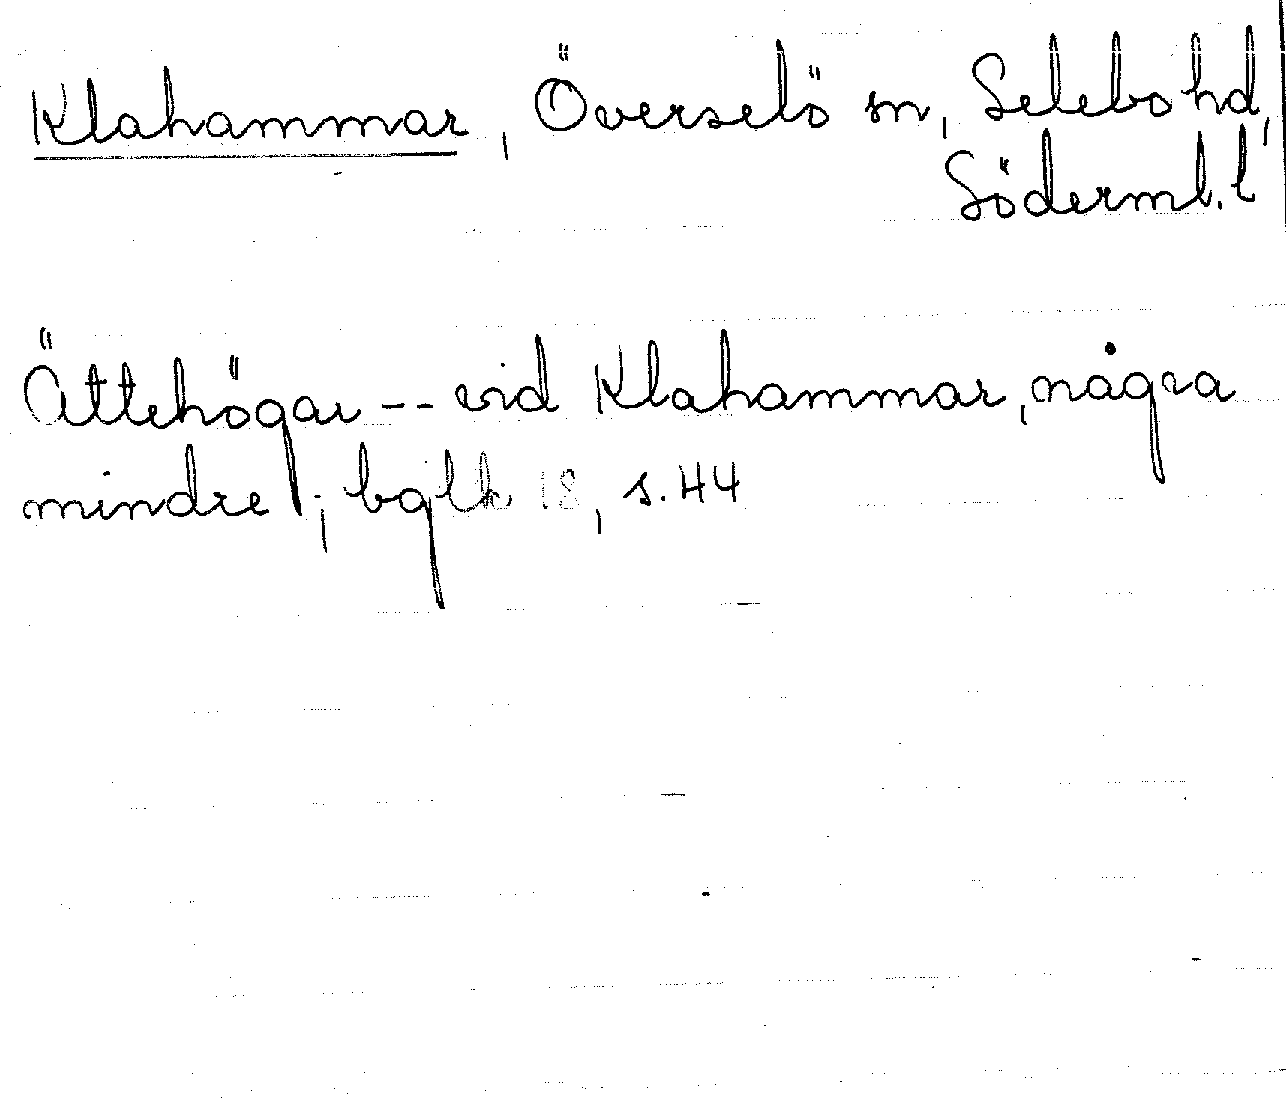 Klahammar, Överselö sn, Selebo hd,
Söderml. l
Ättehögar -- vid Klahammar, några
mindre; bglk 18, s. 44